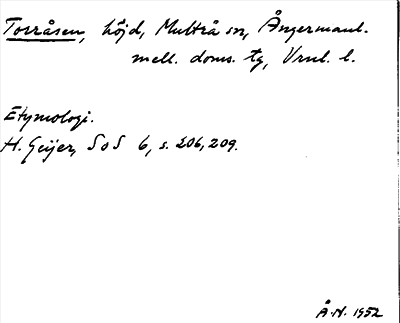 Torråsen, höjd, Multrå sn, Ångermanl.
mell. doms. tg, Vrnl. l.
Etymologi.
H. Geijer, SoS 6, s. 206, 209.
Å.N. 1952